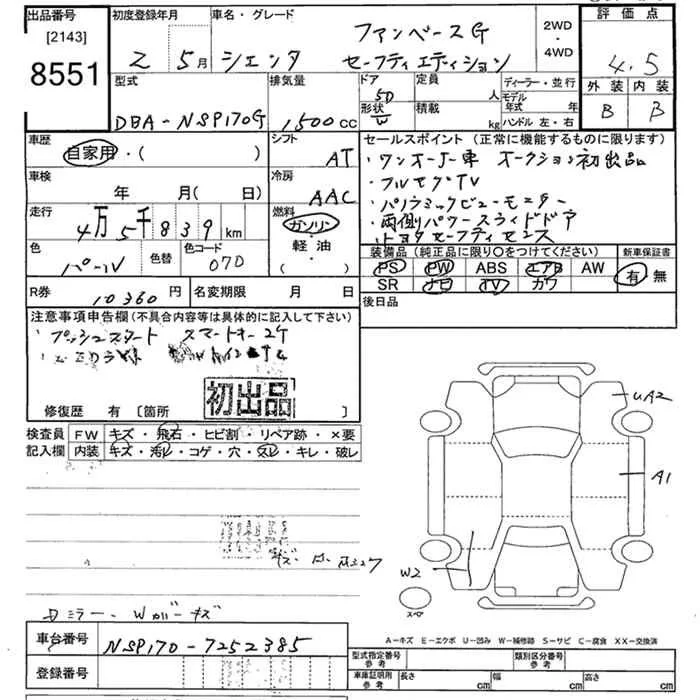 出品番号
[2143]
8551
初度登録年月
2 5月
車名・グレード
シエンタ
ファンベースG
セーフティエディション
2WD
・
4WD
評価点
4.5
外装 内装
B B
型式
DBA-NSP170G
排気量
1,500cc
ドア
5D
形状
定員
人
積載
kg
ディーラー・並行
モデル年式 年
ハンドル 左・右
車歴
自家用・( )
シフト
AT
車検
年 月( 日)
冷房
AAC
走行
4万5千839km
燃料
ガソリン
・
軽油
・
( )
色
パール
色替
色コード
070
R券
10360円
名変期限 月 日
セールスポイント(正常に機能するものに限ります)
・ワンオーナー車 オークション初出品
・フルセグTV
・パノラミックビューモニター
・両側パワースライドドア
・トヨタセーフティセンス
装備品(純正品に限り○をつけてください)
PS PW ABS エアB AW
SR ナビ TV カワ
新車保証書
有 無
後日品
注意事項申告欄(不具合内容等は具体的に記入して下さい)
・プッシュスタート スマートキー2ケ
初出品
修復歴 有 [箇所 ]
検査員
記入欄
FW キズ・飛石・ヒビ割・リペア跡・×要
内装 キズ・汚レ・コゲ・穴・スレ・キレ・破レ
UA2
A1
W2
スペア
ミラー・Wカバーキズ
A-キズ E-エクボ U-凹み W-補修跡 S-サビ C-腐食 XX-交換済
車台番号
NSP170-7252385
登録番号
型式指定番号
参考
類別区分番号
参考
車庫証明用
参考
長さ cm 幅 cm 高さ cm